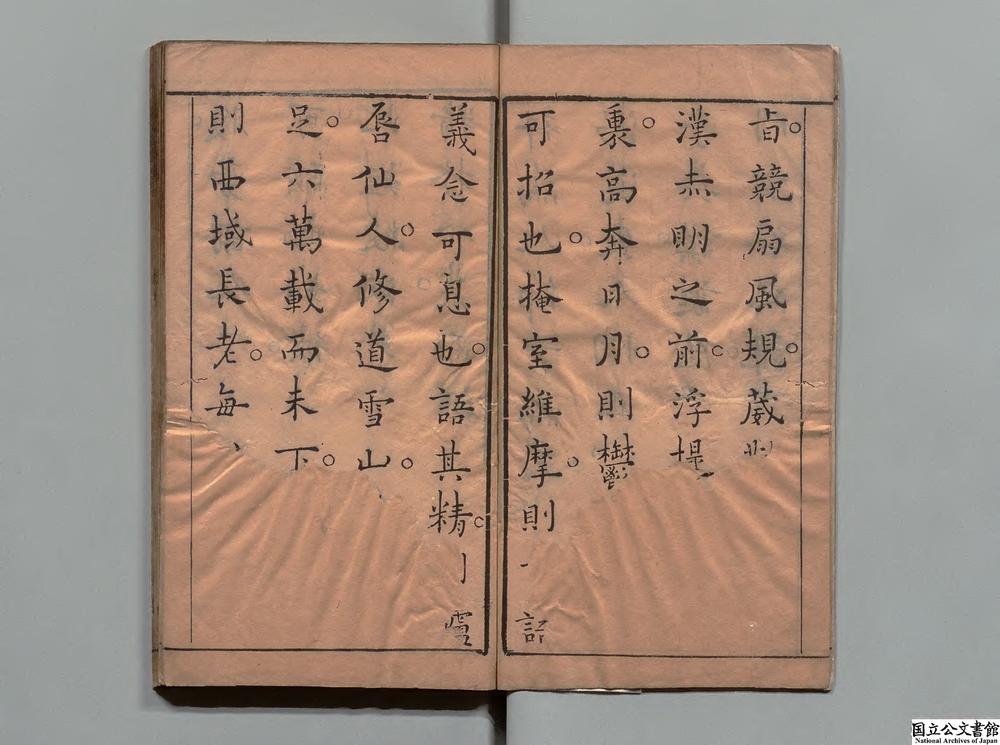 旨競扇風規葳
漢未明之前浮堤
裏高奔日月則鬱
可招也掩室維摩則
義念可息也語其精
唇仙人修道雪山
足六萬載而未下
則西域長老每
国立公文書館
National Archives of Japan